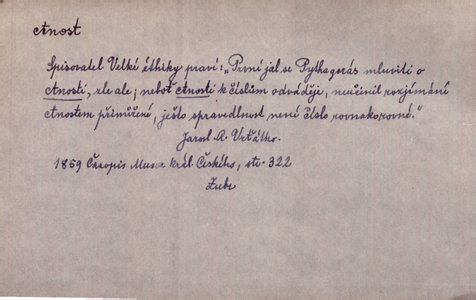 ctnost
Spisovatel Velké éthiky praví: „První jal se Pythagorás mluviti o
ctnosti, zle ale; neboť ctnosti k číslům odváděje, neučinil rozjímání
ctnostem přiměřené, ješto spravedlnost není číslo rovnakorovné."
Jarosl. A. Vrťátko.
1869 Časopis Musea král. Českého, str. 322
Zube